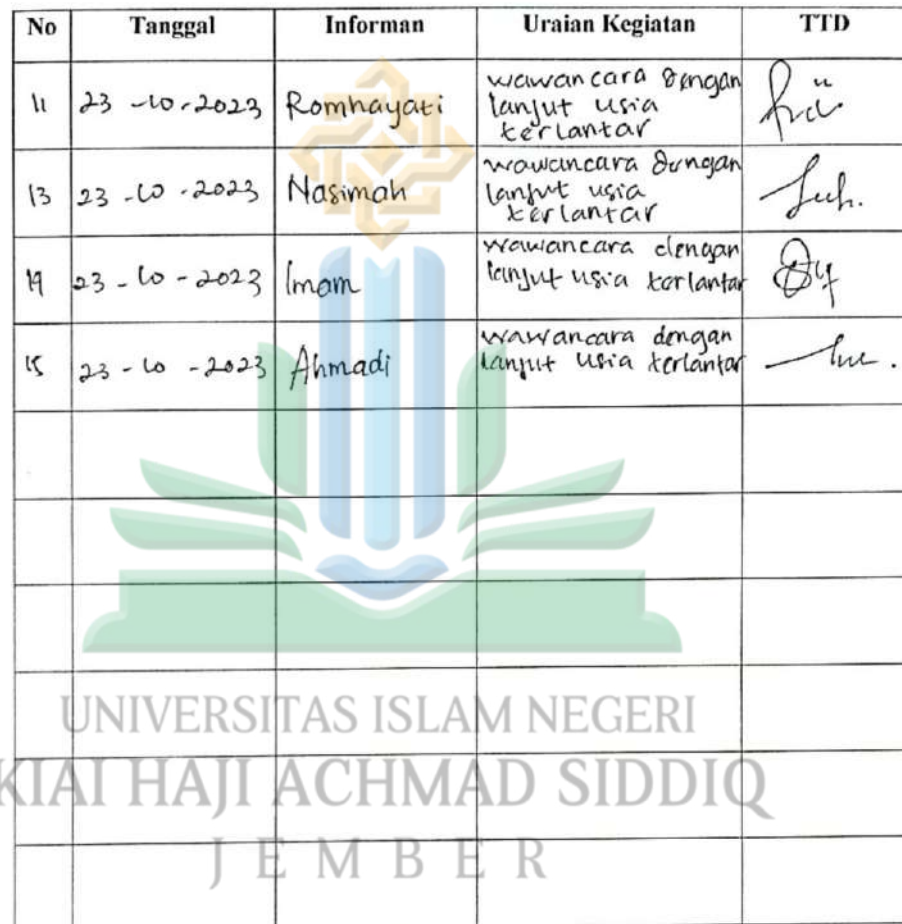 No Tanggal Informan Uraian Kegiatan TTD
11 23-10-2023 Romhayati wawancara dengan
lanjut usia
terlantar
13 23-10-2023 Nasimah wawancara dengan
lanjut usia
terlantar
14 23-10-2023 Imam wawancara dengan
lanjut usia terlantar
15 23-10-2023 Ahmadi wawancara dengan
lanjut usia terlantar
UNIVERSITAS ISLAM NEGERI
KIAI HAJI ACHMAD SIDDIQ
JEMBER